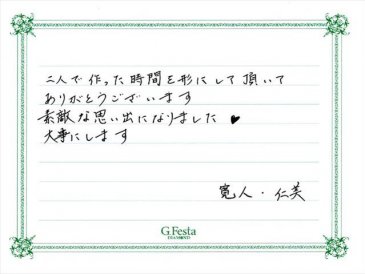 二人で作った時間を形にして頂いて
ありがとうございます
素敵な思い出になりました ♥
大事にします
寛人・仁美
G.Festa
DIAMOND